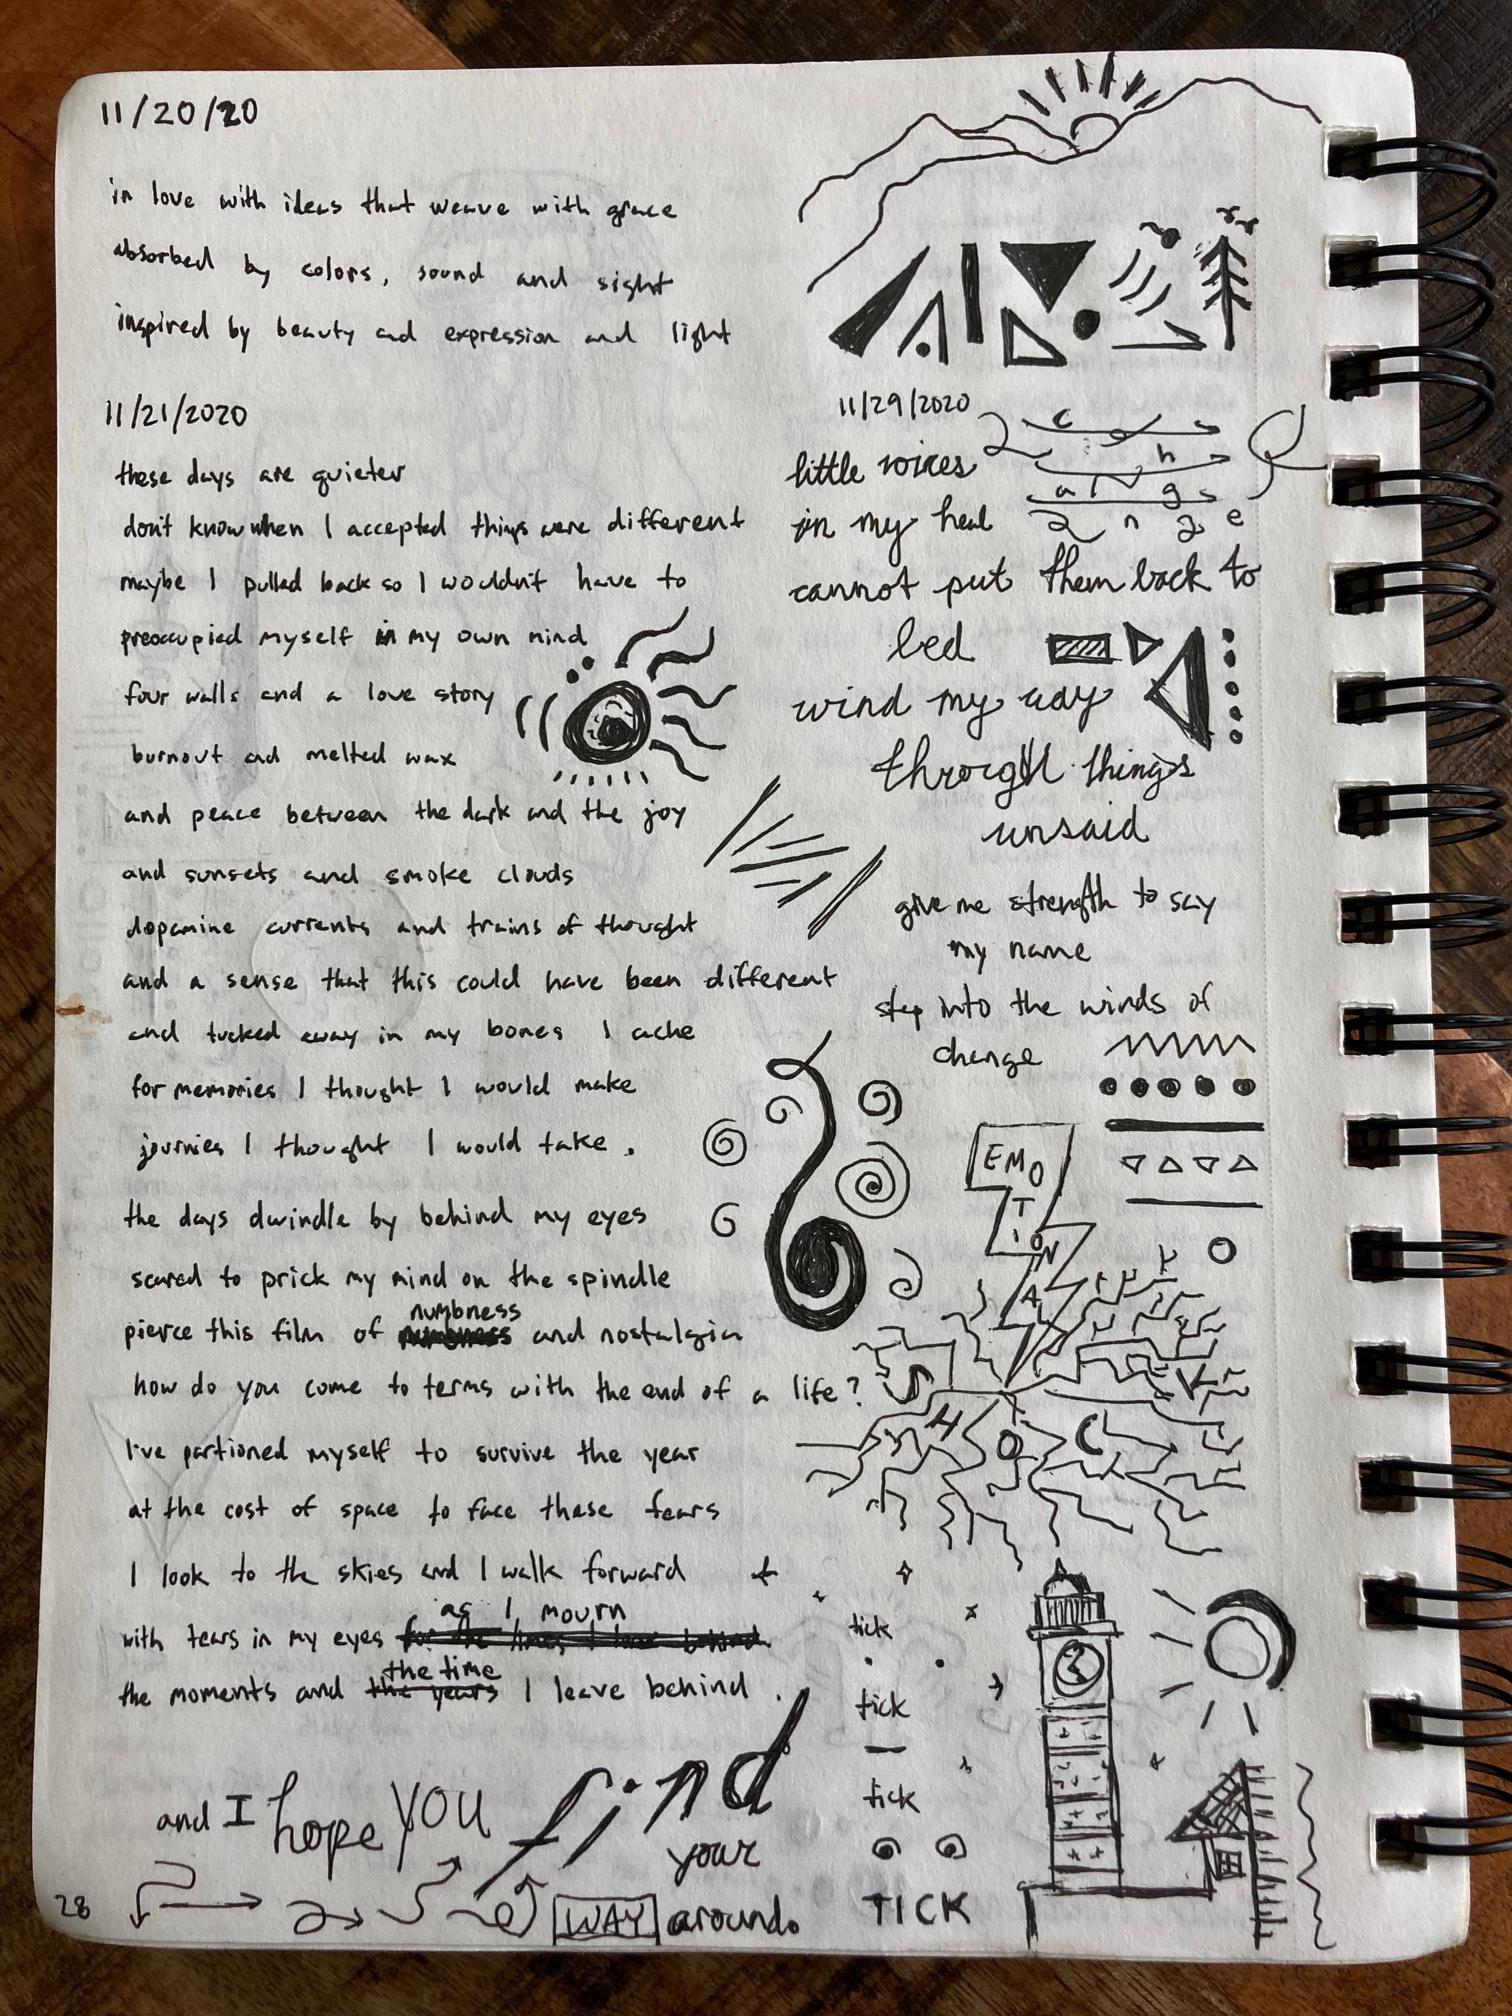 11/20/20
in love with ideas that weave with grace
absorbed by colors, sound and sight
inspired by beauty and expression and light
11/21/2020
these days are quieter
don't know when I accepted things were different
maybe I pulled back so I wouldn't have to
preoccupied myself in my own mind
four walls and a love story
burnout and melted wax
and peace between the dark and the joy
and sunsets and smoke clouds
dopamine currents and trains of thought
and a sense that this could have been different
and tucked away in my bones I ache
for memories I thought I would make
journies I thought I would take.
the days dwindle by behind my eyes
scared to prick my mind on the spindle
numbness
pierce this film of numbness and nostalgia
how do you come to terms with the end of a life?
I've partioned myself to survive the year
at the cost of space to face these fears
I look to the skies and I walk forward
as I mourn
with tears in my eyes
the time
the moments and the years I leave behind.
and I hope YOU find
your
WAY around
28
11/29/2020
c
h
a n g e
little voices
in my head
cannot put them back to
bed
wind my way
through things
unsaid
give me strength to say
my name
step into the winds of
change
EMO
TI
ON
AL
S H O C K
tick
tick
tick
TICK